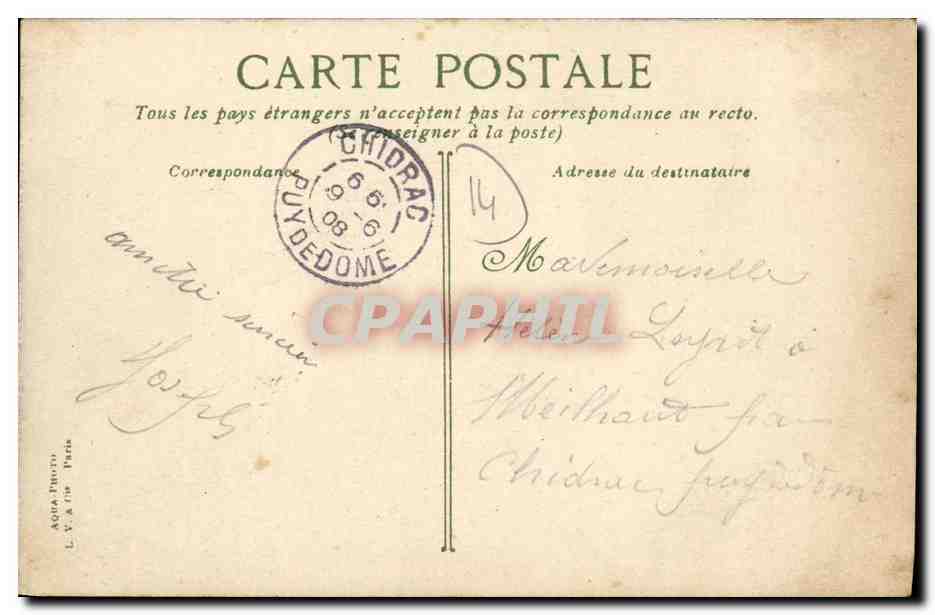 CARTE POSTALE
Tous les pays étrangers n'acceptent pas la correspondance au recto.
(Se renseigner à la poste)
Correspondance
Adresse du destinataire
CHIDRAC
9-6
08
PUY DE DOME
14
Joseph
Mademoiselle
à
Meilhaud
Chidrac puydedôme
CPAPHIL
AQUA-PHOTO
L. V. & Cie Paris